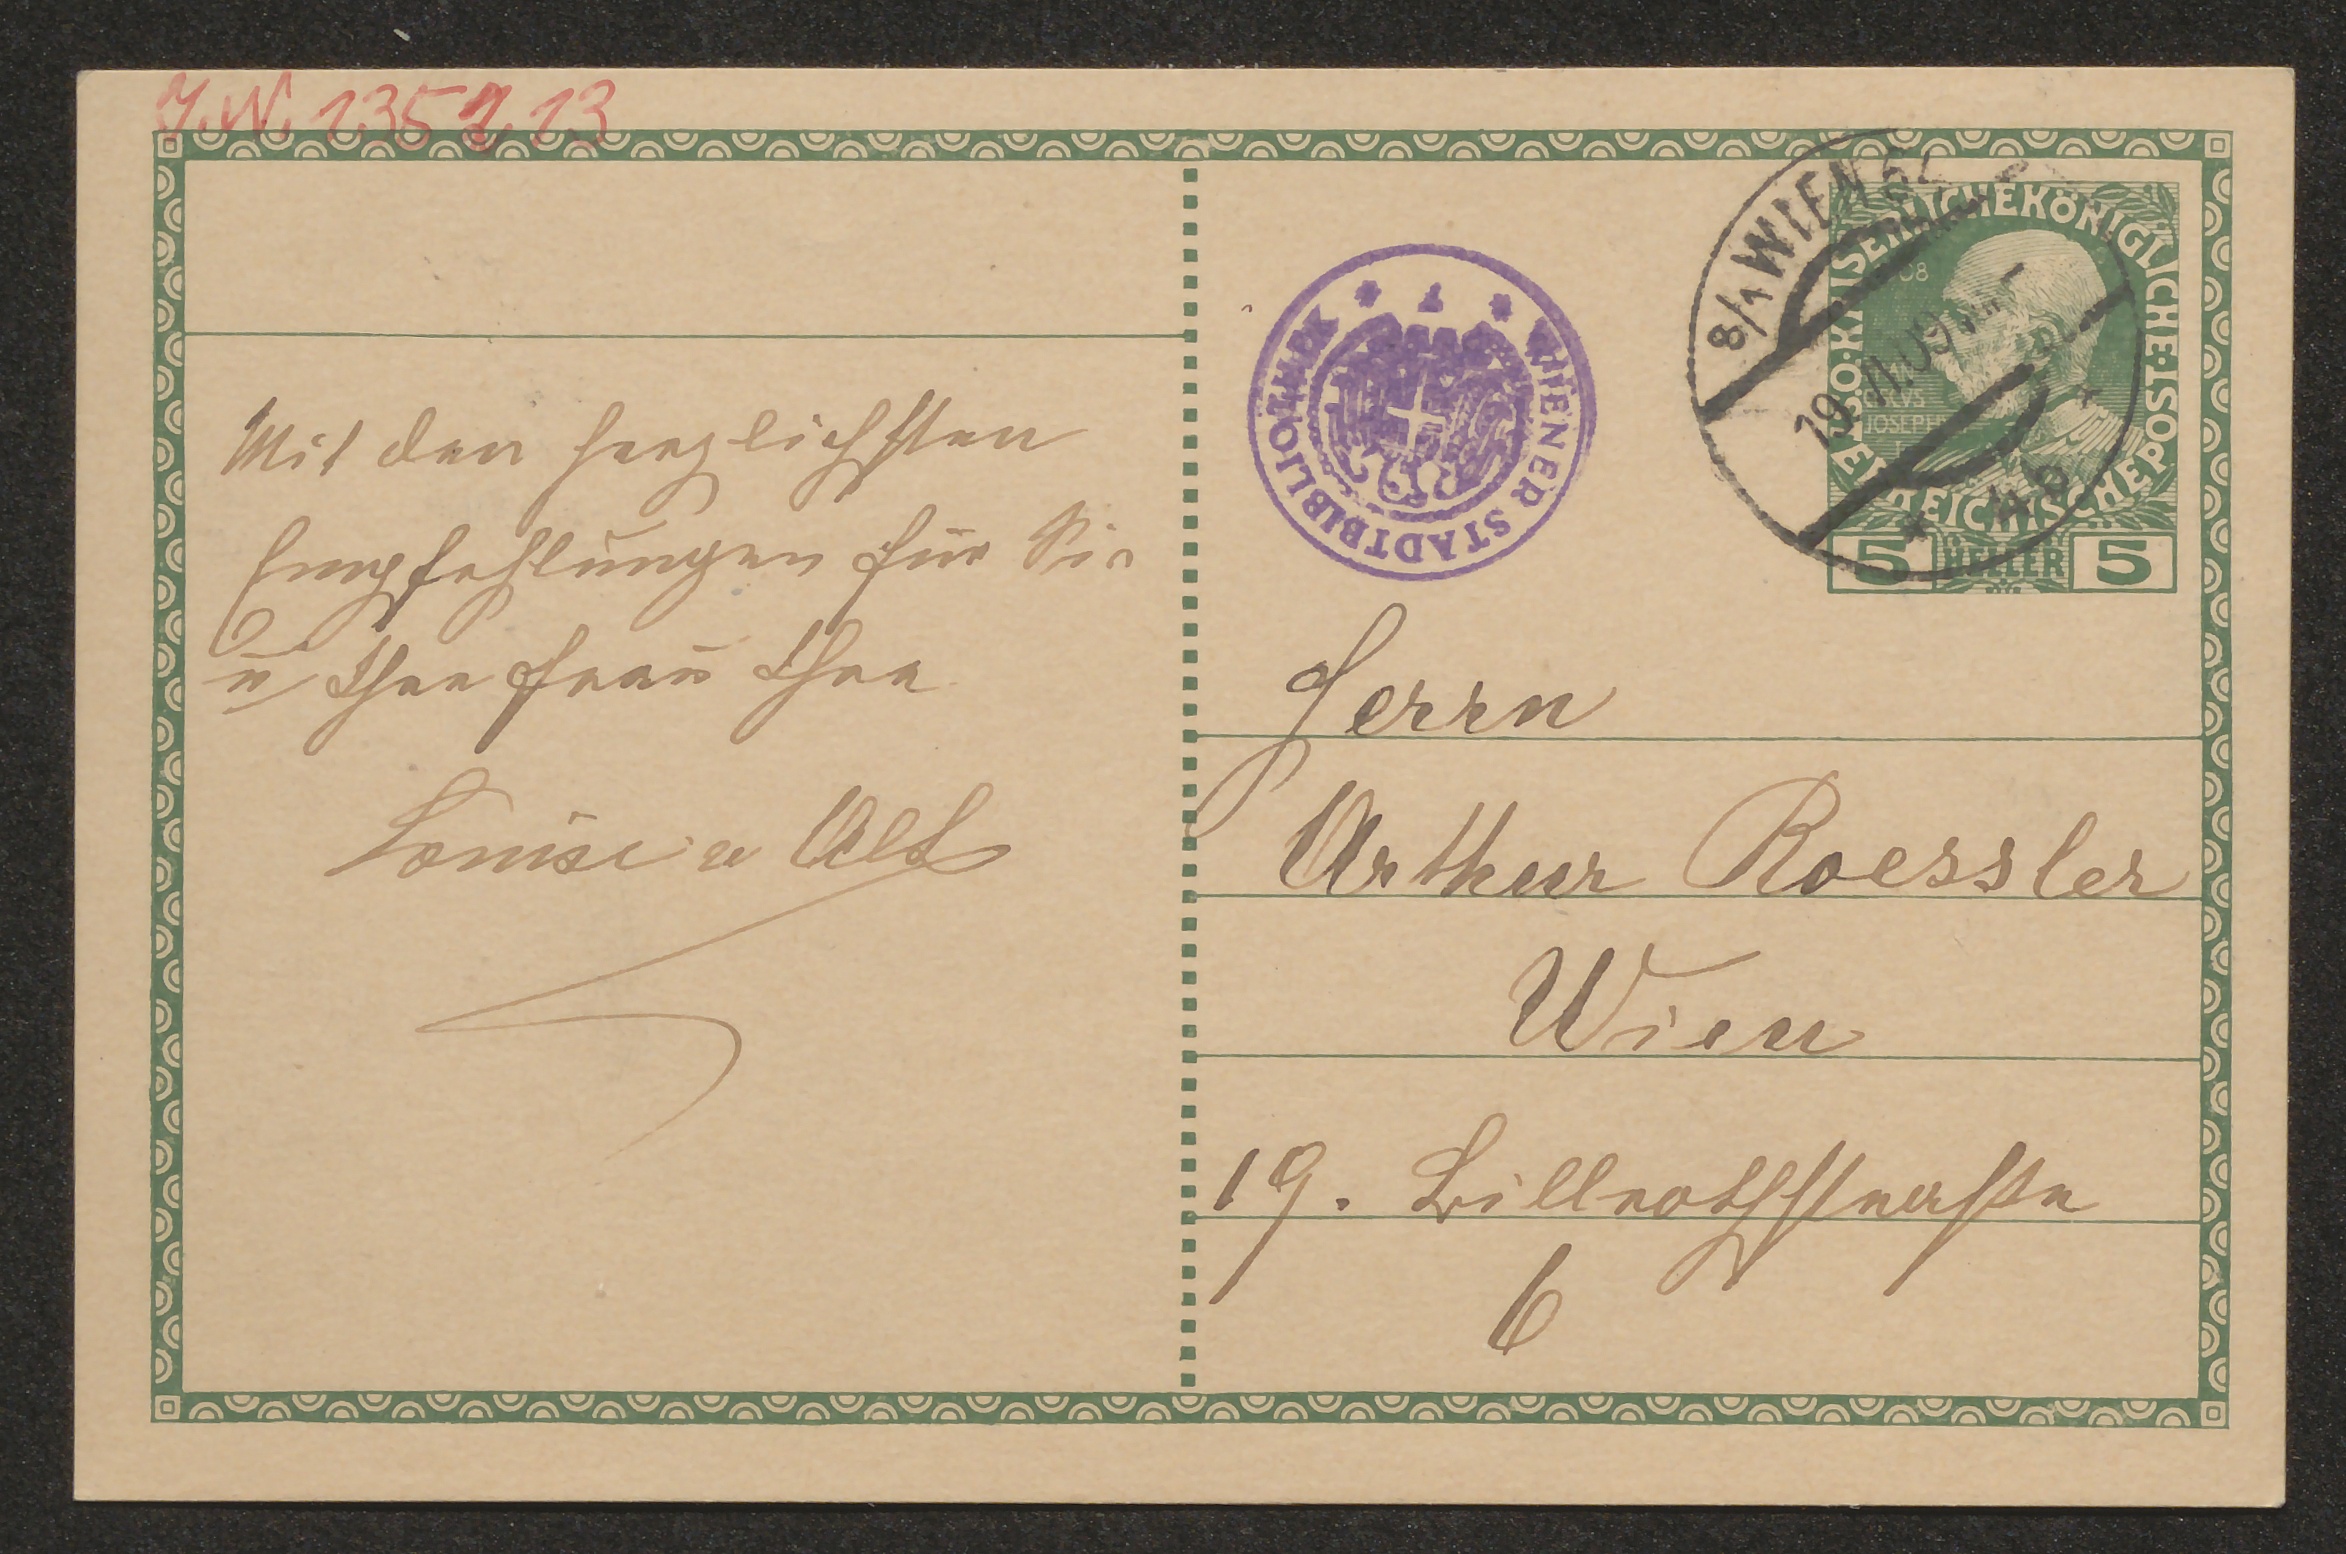 J.N. 135213
Mit den herzlichsten
Empfehlungen für Sie
u Ihre Frau Ihre
Louise v Alt
WIENER STADTBIBLIOTHEK
8/1 WIEN
KAISERLICHEKÖNIGLICHE
ÖSTERREICHISCHE POST
1908
JOSEPH
5 HELLER 5
Herrn
Arthur Roessler
Wien
19. Billrothstraße
6